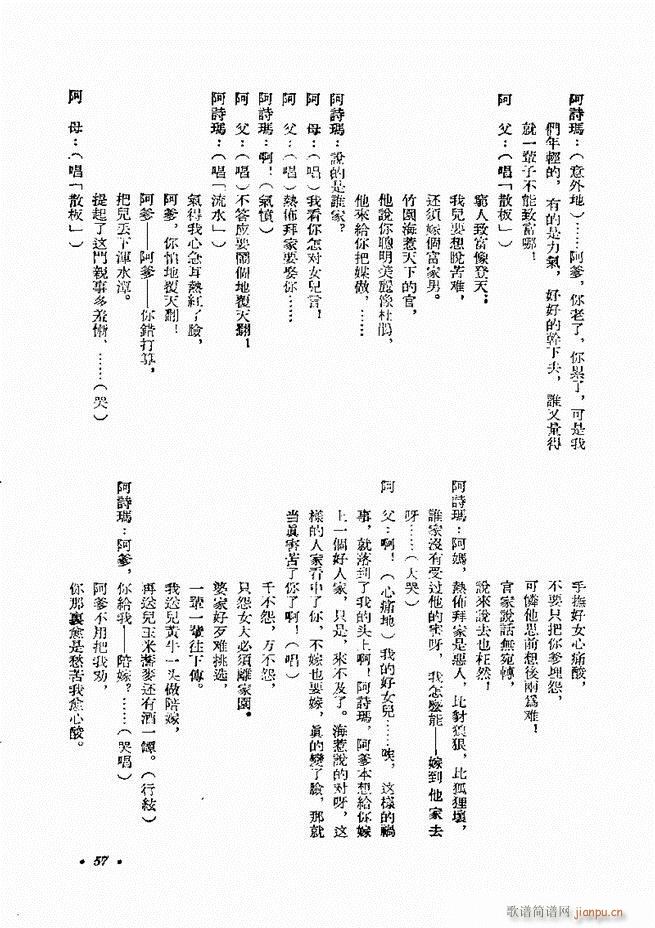 阿詩瑪：（意外地）……阿爹，你老了，你累了，可是我
們年輕的，有的是力氣，好好的幹下去，誰又量得
就一輩子不能致富哪！
阿　父：（唱「散板」）
窮人致富像登天：
我兒要想脫苦难，
还須嫁個富家男。
竹園海惹天下的官，
他說你聰明美麗像杜鵑，
他來給你把媒做，……
阿詩瑪：說的是誰家？
阿　母：（唱）我看你怎对女兒言！
阿　父：（唱）熱佈拜家要娶你……
阿詩瑪：啊！（氣憤）
阿　父：（唱）不答应要鬧個地覆天翻！
阿詩瑪：（唱「流水」）
氣得我心急耳熱紅了臉，
阿爹，你怕地覆天翻！
阿爹——阿爹——你錯打算，
把兒丟下渾水潭。
阿　母：（唱「散板」）
提起了這門親事多羞慚，……（哭）
手撫好女心痛酸，
不要只把你爹埋怨，
可憐他思前想後兩爲难！
官家說話無宛轉，
說來說去也枉然！
阿詩瑪：阿媽，熱佈拜家是惡人，比豺狼狠，比狐狸壞，
誰家沒有受过他的害呀，我怎麼能——嫁到他家去
呀……（大哭）
阿　父：啊！（心痛地）我的好女兒……唉，這樣的禍
事，就落到了我的头上啊！阿詩瑪，阿爹本想給你嫁
上一個好人家，只是，來不及了。海惹說的对呀，這
樣的人家看中了你，不嫁也要嫁，眞的變了臉，那就
当眞害苦了你了啊！（唱）
千不怨，万不怨，
只怨女大必須離家園。
婆家好歹难挑选，
一輩一輩往下傳。
我送兒黃牛一头做陪嫁，
再送兒玉米蕎麥还有酒一罈。（行絃）
阿詩瑪：阿爹，你給我——陪嫁？……（哭唱）
阿爹不用把我劝，
你那裏愈是愁苦我愈心酸。
• 57 •
歌谱简谱网 jianpu.cn